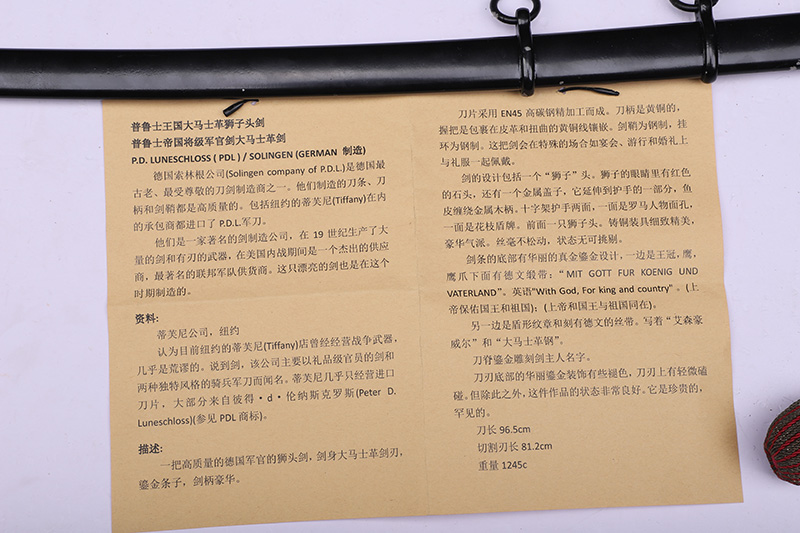 普鲁士王国大马士革狮子头剑
普鲁士帝国将级军官剑大马士革剑
P.D. LUNESCHLOSS ( PDL ) / SOLINGEN (GERMAN 制造)
德国索林根公司(Solingen company of P.D.L.)是德国最
古老、最受尊敬的刀剑制造商之一。他们制造的刀条、刀
柄和剑鞘都是高质量的。包括纽约的蒂芙尼(Tiffany)在内
的承包商都进口了 P.D.L.军刀。
他们是一家著名的剑制造公司，在 19 世纪生产了大
量的剑和有刃的武器，在美国内战期间是一个杰出的供应
商，最著名的联邦军队供货商。这只漂亮的剑也是在这个
时期制造的。
资料:
蒂芙尼公司，纽约
认为目前纽约的蒂芙尼(Tiffany)店曾经经营战争武器，
几乎是荒谬的。说到剑，该公司主要以礼品级官员的剑和
两种独特风格的骑兵军刀而闻名。蒂芙尼几乎只经营进口
刀片，大部分来自彼得·d·伦纳斯克罗斯(Peter D.
Luneschloss)(参见 PDL 商标)。
描述:
一把高质量的德国军官的狮头剑，剑身大马士革剑刃，
鎏金条子，剑柄豪华。
刀片采用 EN45 高碳钢精加工而成。刀柄是黄铜的，
握把是包裹在皮革和扭曲的黄铜线镶嵌。剑鞘为钢制，挂
环为钢制。这把剑会在特殊的场合如宴会、游行和婚礼上
与礼服一起佩戴。
剑的设计包括一个“狮子”头。狮子的眼睛里有红色
的石头，还有一个金属盖子，它延伸到护手的一部分，鱼
皮缠绕金属木柄。十字架护手两面，一面是罗马人物面孔，
一面是花枝盾牌。前面一只狮子头。铸铜装具细致精美，
豪华气派。丝毫不松动，状态无可挑剔。
剑条的底部有华丽的真金鎏金设计，一边是王冠，鹰，
鹰爪下面有德文缎带：“MIT GOTT FUR KOENIG UND
VATERLAND”。英语"With God, For king and country" 。(上
帝保佑国王和祖国)；(上帝和国王与祖国同在)。
另一边是盾形纹章和刻有德文的丝带。写着“艾森豪
威尔”和“大马士革钢”。
刀脊鎏金雕刻剑主人名字。
刀刃底部的华丽鎏金装饰有些褪色，刀刃上有轻微磕
碰。但除此之外，这件作品的状态非常好。它是珍贵的，
罕见的。
刀长 96.5cm
切割刃长 81.2cm
重量 1245c